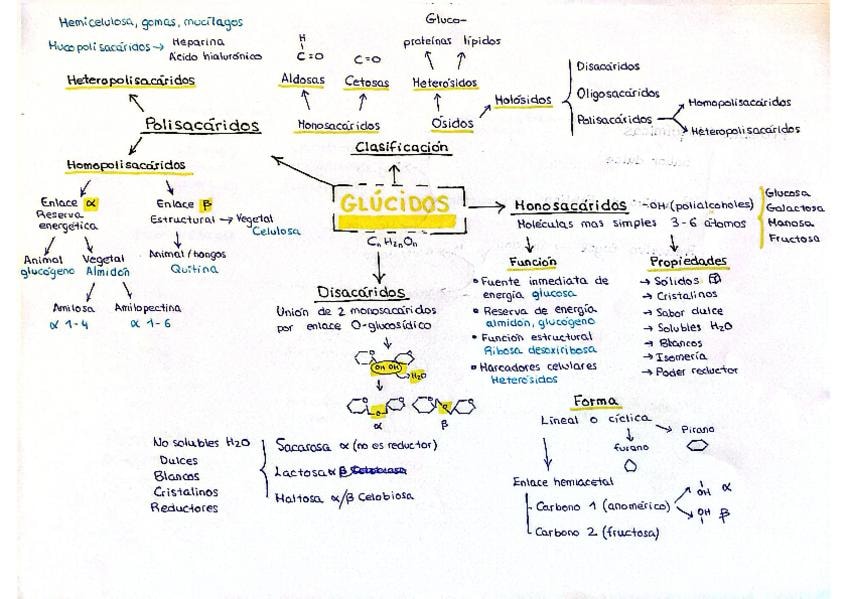 Hemicelulosa, gomas, mucílagos
Mucopolisacáridos → Heparina
Ácido hialurónico
Heteropolisacáridos
Polisacáridos
Homopolisacáridos
Enlace α
Reserva
energética
Animal
glucógeno
Vegetal
Almidón
Amilosa
α 1-4
Amilopectina
α 1-6
Enlace β
Estructural → Vegetal
Celulosa
Animal/hongos
Quitina
H
C=O
Aldosas
C=O
Cetosas
Monosacáridos
Gluco-
proteínas lípidos
Heterósidos
Ósidos
Holósidos
Disacáridos
Oligosacáridos
Polisacáridos
Homopolisacáridos
Heteropolisacáridos
Clasificación
GLÚCIDOS
CnH2nOn
Monosacáridos -OH (polialcoholes)
Moléculas mas simples 3-6 átomos
Glucosa
Galactosa
Manosa
Fructosa
Función
• Fuente inmediata de
energía glucosa
• Reserva de energía
almidón, glucógeno
• Función estructural
Ribosa desoxiribosa
• Marcadores celulares
Heterósidos
Propiedades
→ Sólidos
→ Cristalinos
→ Sabor dulce
→ Solubles H2O
→ Blancos
→ Isomería
→ Poder reductor
Disacáridos
Unión de 2 monosacáridos
por enlace O-glucosídico
OH OH
H2O
O
O
α
β
No solubles H2O
Dulces
Blancos
Cristalinos
Reductores
Sacarosa α (no es reductor)
Lactosa α β Celobiosa
Maltosa α/β Celobiosa
Forma
Lineal o cíclica
Pirano
furano
Enlace hemiacetal
Carbono 1 (anomérico)
OH α
OH β
Carbono 2 (fructosa)